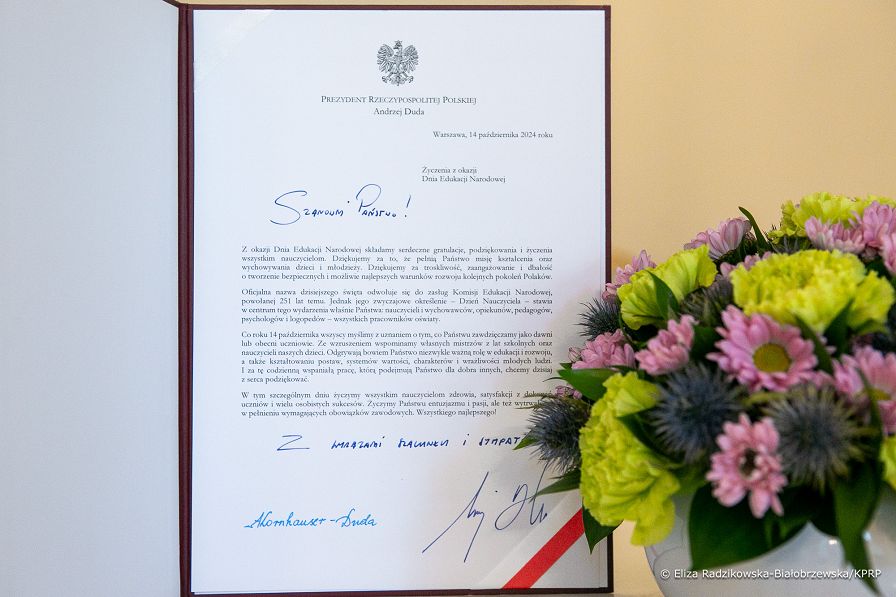 PREZYDENT RZECZYPOSPOLITEJ POLSKIEJ
Andrzej Duda
Warszawa, 14 października 2024 roku
Życzenia z okazji
Dnia Edukacji Narodowej
Szanowni Państwo!
Z okazji Dnia Edukacji Narodowej składamy serdeczne gratulacje, podziękowania i życzenia
wszystkim nauczycielom. Dziękujemy za to, że pełnią Państwo misję kształcenia oraz
wychowywania dzieci i młodzieży. Dziękujemy za troskliwość, zaangażowanie i dbałość
o tworzenie bezpiecznych i możliwie najlepszych warunków rozwoju kolejnych pokoleń Polaków.
Oficjalna nazwa dzisiejszego święta odwołuje się do zasług Komisji Edukacji Narodowej,
powołanej 251 lat temu. Jednak jego zwyczajowe określenie – Dzień Nauczyciela – stawia
w centrum tego wydarzenia właśnie Państwa: nauczycieli i wychowawców, opiekunów, pedagogów,
psychologów i logopedów – wszystkich pracowników oświaty.
Co roku 14 października wszyscy myślimy z uznaniem o tym, co Państwu zawdzięczamy jako dawni
lub obecni uczniowie. Ze wzruszeniem wspominamy własnych mistrzów z lat szkolnych oraz
nauczycieli naszych dzieci. Odgrywają bowiem Państwo niezwykle ważną rolę w edukacji i rozwoju,
a także kształtowaniu postaw, systemów wartości, charakterów i wrażliwości młodych ludzi.
I za tę codzienną wspaniałą pracę, którą podejmują Państwo dla dobra innych, chcemy dzisiaj
z serca podziękować.
W tym szczególnym dniu życzymy wszystkim nauczycielom zdrowia, satysfakcji z dokonań
uczniów i wielu osobistych sukcesów. Życzymy Państwu entuzjazmu i pasji, ale też
w pełnieniu wymagających obowiązków zawodowych. Wszystkiego najlepszego!
Z wyrazami szacunku i sympat
AKornhauser-Duda
© Eliza Radzikowska-Białobrzewska/KPRP